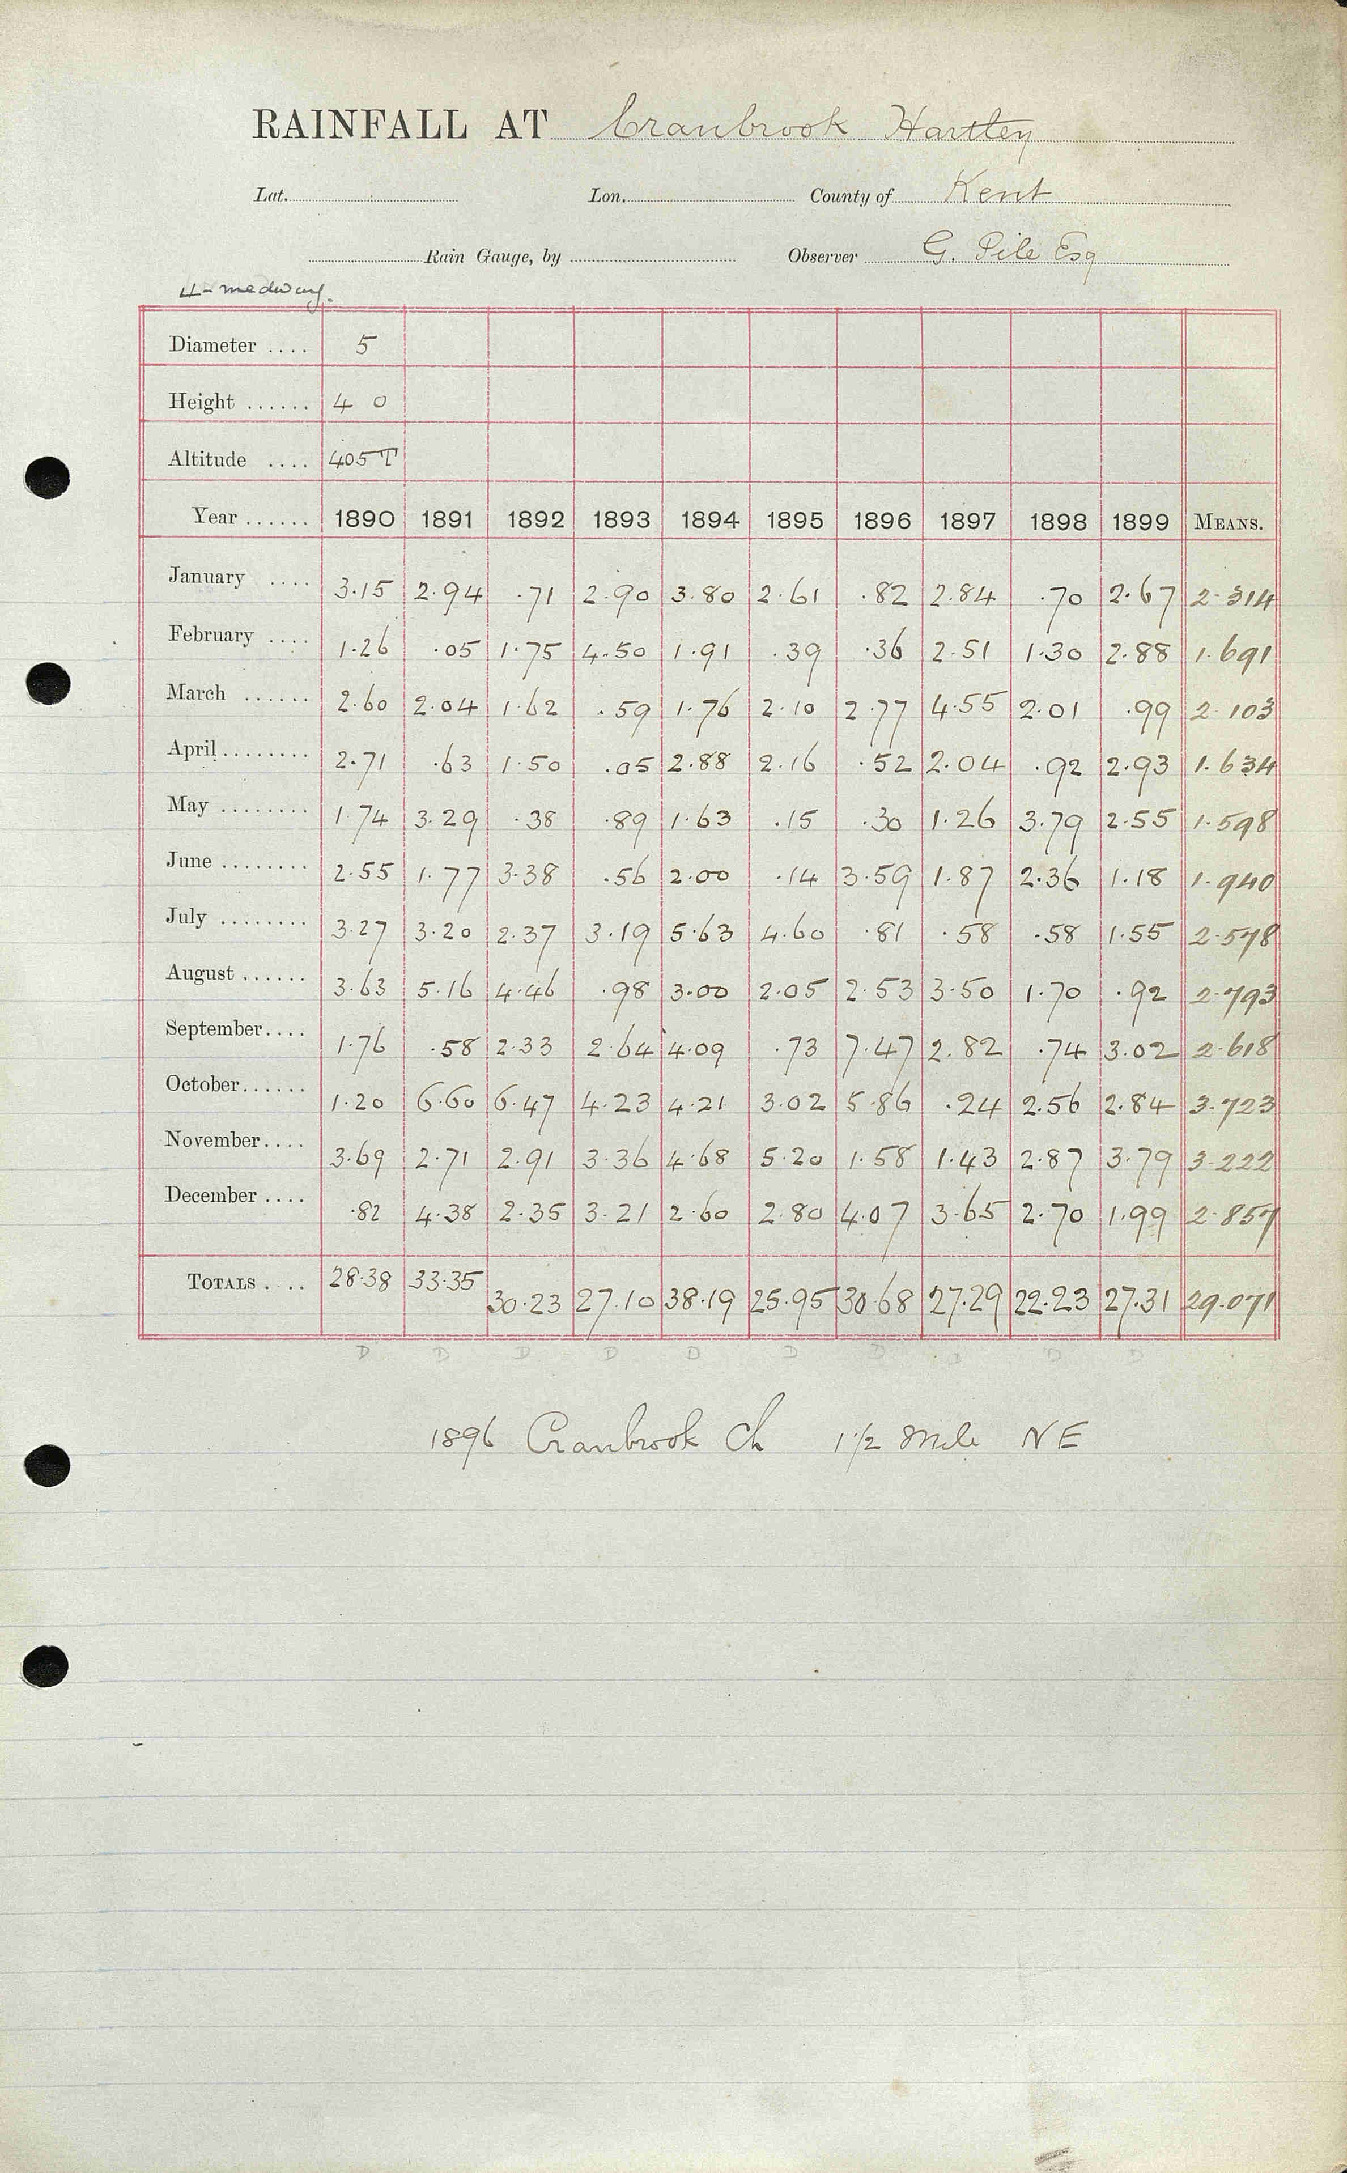 RAINFALL AT Cranbrook Hartley
Lat. Lon. County of Kent
Rain Gauge, by Observer G. Pile Esq
4- medway.
Diameter .... 5
Height ...... 4 0
Altitude .... 405 T
Year ...... 1890 1891 1892 1893 1894 1895 1896 1897 1898 1899 MEANS.
January .... 3.15 2.94 .71 2.90 3.80 2.61 .82 2.84 .70 2.67 2.314
February .... 1.26 .05 1.75 4.50 1.91 .39 .36 2.51 1.30 2.88 1.691
March ...... 2.60 2.04 1.62 .59 1.76 2.10 2.77 4.55 2.01 .99 2.103
April ........ 2.71 .63 1.50 .05 2.88 2.16 .52 2.04 .92 2.93 1.634
May ........ 1.74 3.29 .38 .89 1.63 .15 .30 1.26 3.79 2.55 1.598
June ........ 2.55 1.77 3.38 .56 2.00 .14 3.59 1.87 2.36 1.18 1.940
July ........ 3.27 3.20 2.37 3.19 5.63 4.60 .81 .58 .58 1.55 2.578
August ...... 3.63 5.16 4.46 .98 3.00 2.05 2.53 3.50 1.70 .92 2.793
September .... 1.76 .58 2.33 2.64 4.09 .73 7.47 2.82 .74 3.02 2.618
October ...... 1.20 6.60 6.47 4.23 4.21 3.02 5.86 .24 2.56 2.84 3.723
November .... 3.69 2.71 2.91 3.36 4.68 5.20 1.58 1.43 2.87 3.79 3.222
December .... .82 4.38 2.35 3.21 2.60 2.80 4.07 3.65 2.70 1.99 2.857
TOTALS .... 28.38 33.35 30.23 27.10 38.19 25.95 30.68 27.29 22.23 27.31 29.071
D D D D D D D D D D
1896 Cranbrook Ch 1 1/2 Mile NE